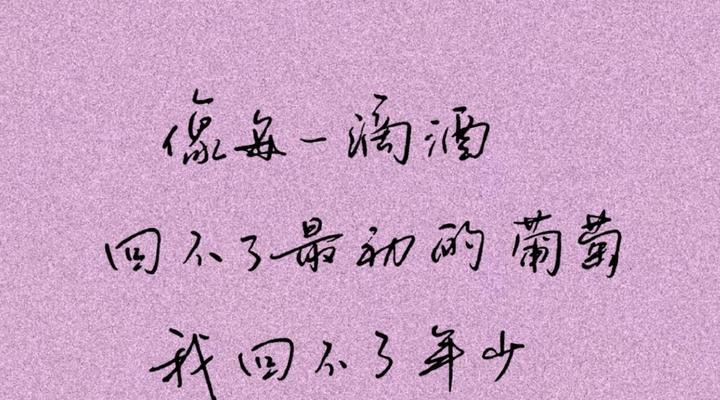 像每一滴酒
回不了最初的葡萄
我回不了年少